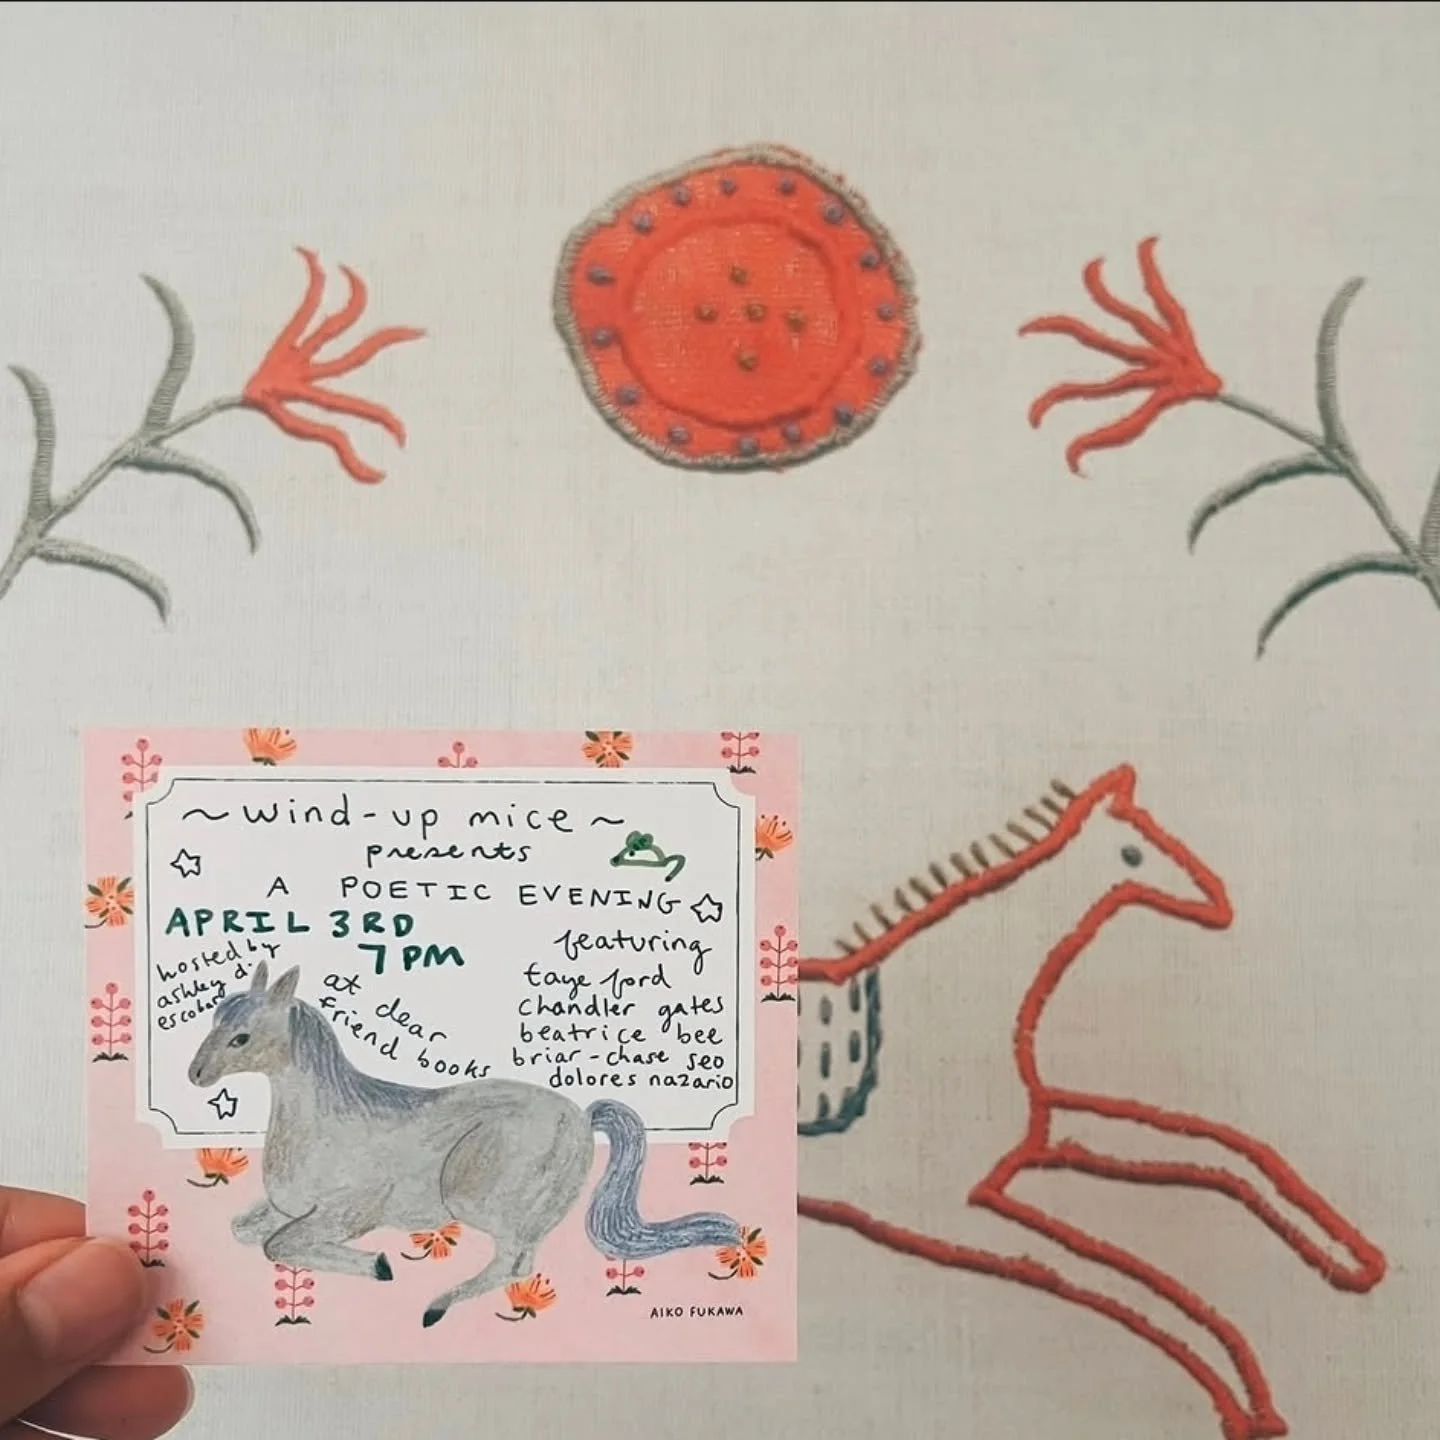 ~ wind-up mice ~
presents
A POETIC EVENING
APRIL 3RD
7 PM
hosted by
ashley d.
escobar
at dear
friend books
featuring
taye ford
chandler gates
beatrice bee
briar-chase seo
dolores nazario
AIKO FUKAWA